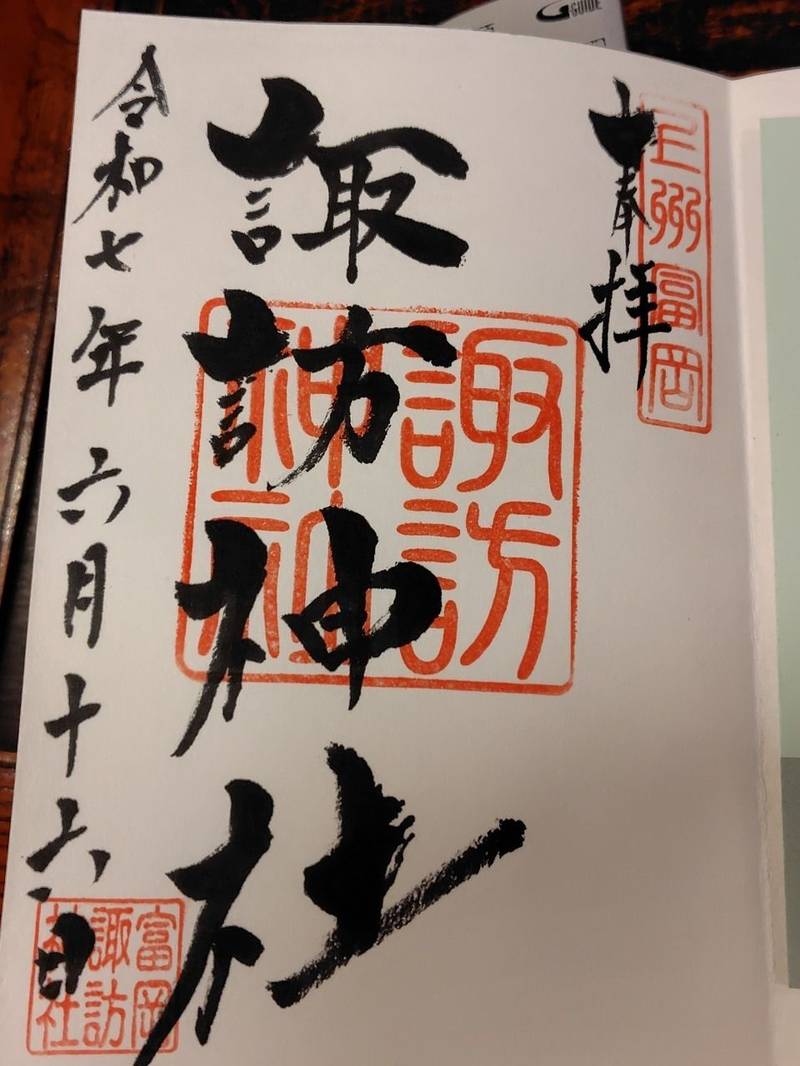 奉拝
上州富岡
諏訪神社
諏訪
神社
令和七年六月十六日
富岡
諏訪
神社
GUIDE